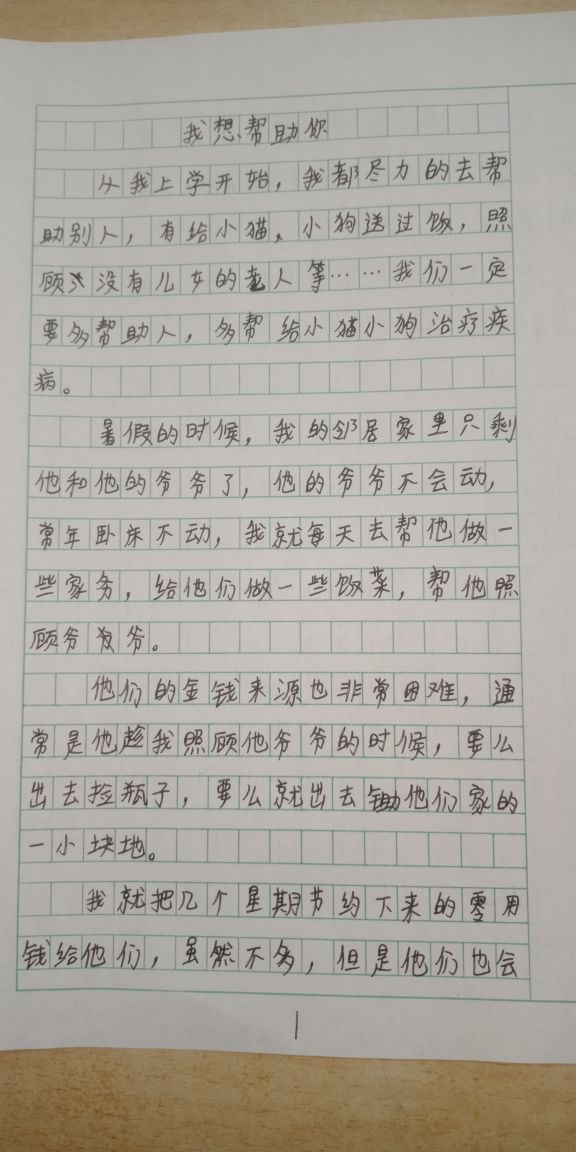 我想帮助你
从我上学开始，我都尽力的去帮
助别人，有给小猫、小狗送过饭，照
顾没有儿女的老人等……我们一定
要多帮助人，多帮给小猫小狗治疗疾
病。
暑假的时候，我的邻居家里只剩
他和他的爷爷了，他的爷爷不会动，
常年卧床不动，我就每天去帮他做一
些家务，给他们做一些饭菜，帮他照
顾爷爷。
他们的金钱来源也非常困难，通
常是他趁我照顾他爷爷的时候，要么
出去捡瓶子，要么就出去锄他们家的
一小块地。
我就把几个星期节约下来的零用
钱给他们，虽然不多，但是他们也会
1